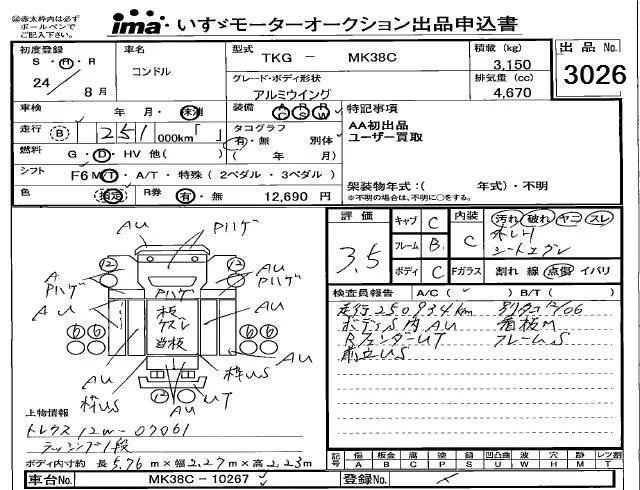 ㊟赤太枠内は必ず
ボールペンで
ご記入下さい。
ima いすゞモーターオークション出品申込書
初度登録
S・H・R
24 8月
車名
コンドル
型式
TKG － MK38C
グレード・ボディ形状
アルミウイング
積載 (kg)
3,150
排気量 (cc)
4,670
出品 No.
3026
車検 年 月・未満
装備 AC PS RW
走行 B 251 000km「 」
タコグラフ
有・無 別体
( 年 月)
燃料 G・D・HV 他( )
シフト F6 M/T・A/T・特殊(2ペダル・3ペダル)
色 指定
R券 有・無 12,690 円
特記事項
AA初出品
ユーザー買取
架装物年式:( 年式)・不明
※不明の場合は、不明に○をする。
AU
Pハゲ
A
Pハゲ
AU
Pハゲ
AU
Pハゲ
AU
板
ズレ
当板
AU
AU
枠US
枠US
UT
AU
12
12
6 6
6 6
12
上物情報
トレクス 12W-07061
ラッシング1段
ボディ内寸約 長 5.76 m×幅 2.27 m×高 2.23 m
評価
3.5
キャブ C
フレーム B
ボディ C
内装 C
汚れ 破れ ヤニ スレ
シートエグレ
Fガラス 割れ 線 点傷 イバリ
検査員報告 A/C( ) B/T( )
走行250934km 別タコ12/06
ボディS内AU 看板M
BフェンダーUT フレームS
前立US
記号
傷 板金 腐 塗 錆 凹凸曲 波 穴 跡 レツ割
A B C P S U W H M T
車台No. MK38C－10267
登録No.